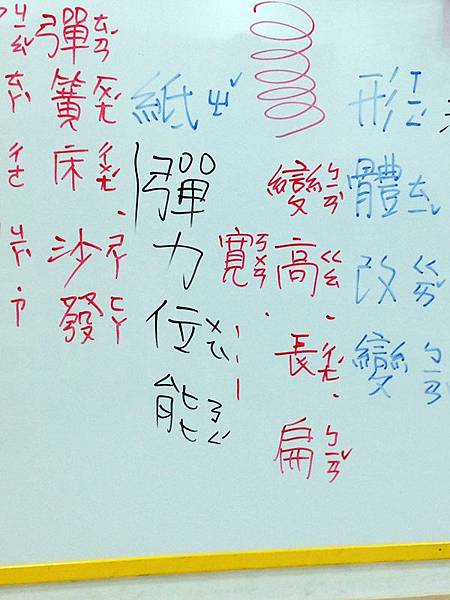 形ㄒㄧㄥˊ體ㄊㄧˇ改ㄍㄞˇ變ㄅㄧㄢˋ
變ㄅㄧㄢˋ高ㄍㄠ、長ㄔㄤˊ、扁ㄅㄧㄢˇ
寬ㄎㄨㄢ、
紙ㄓˇ
彈力位ㄨㄟˋ能ㄋㄥˊ
彈ㄊㄢˊ簧ㄏㄨㄤˊ床ㄔㄨㄤˊ、沙ㄕㄚ發ㄈㄚ